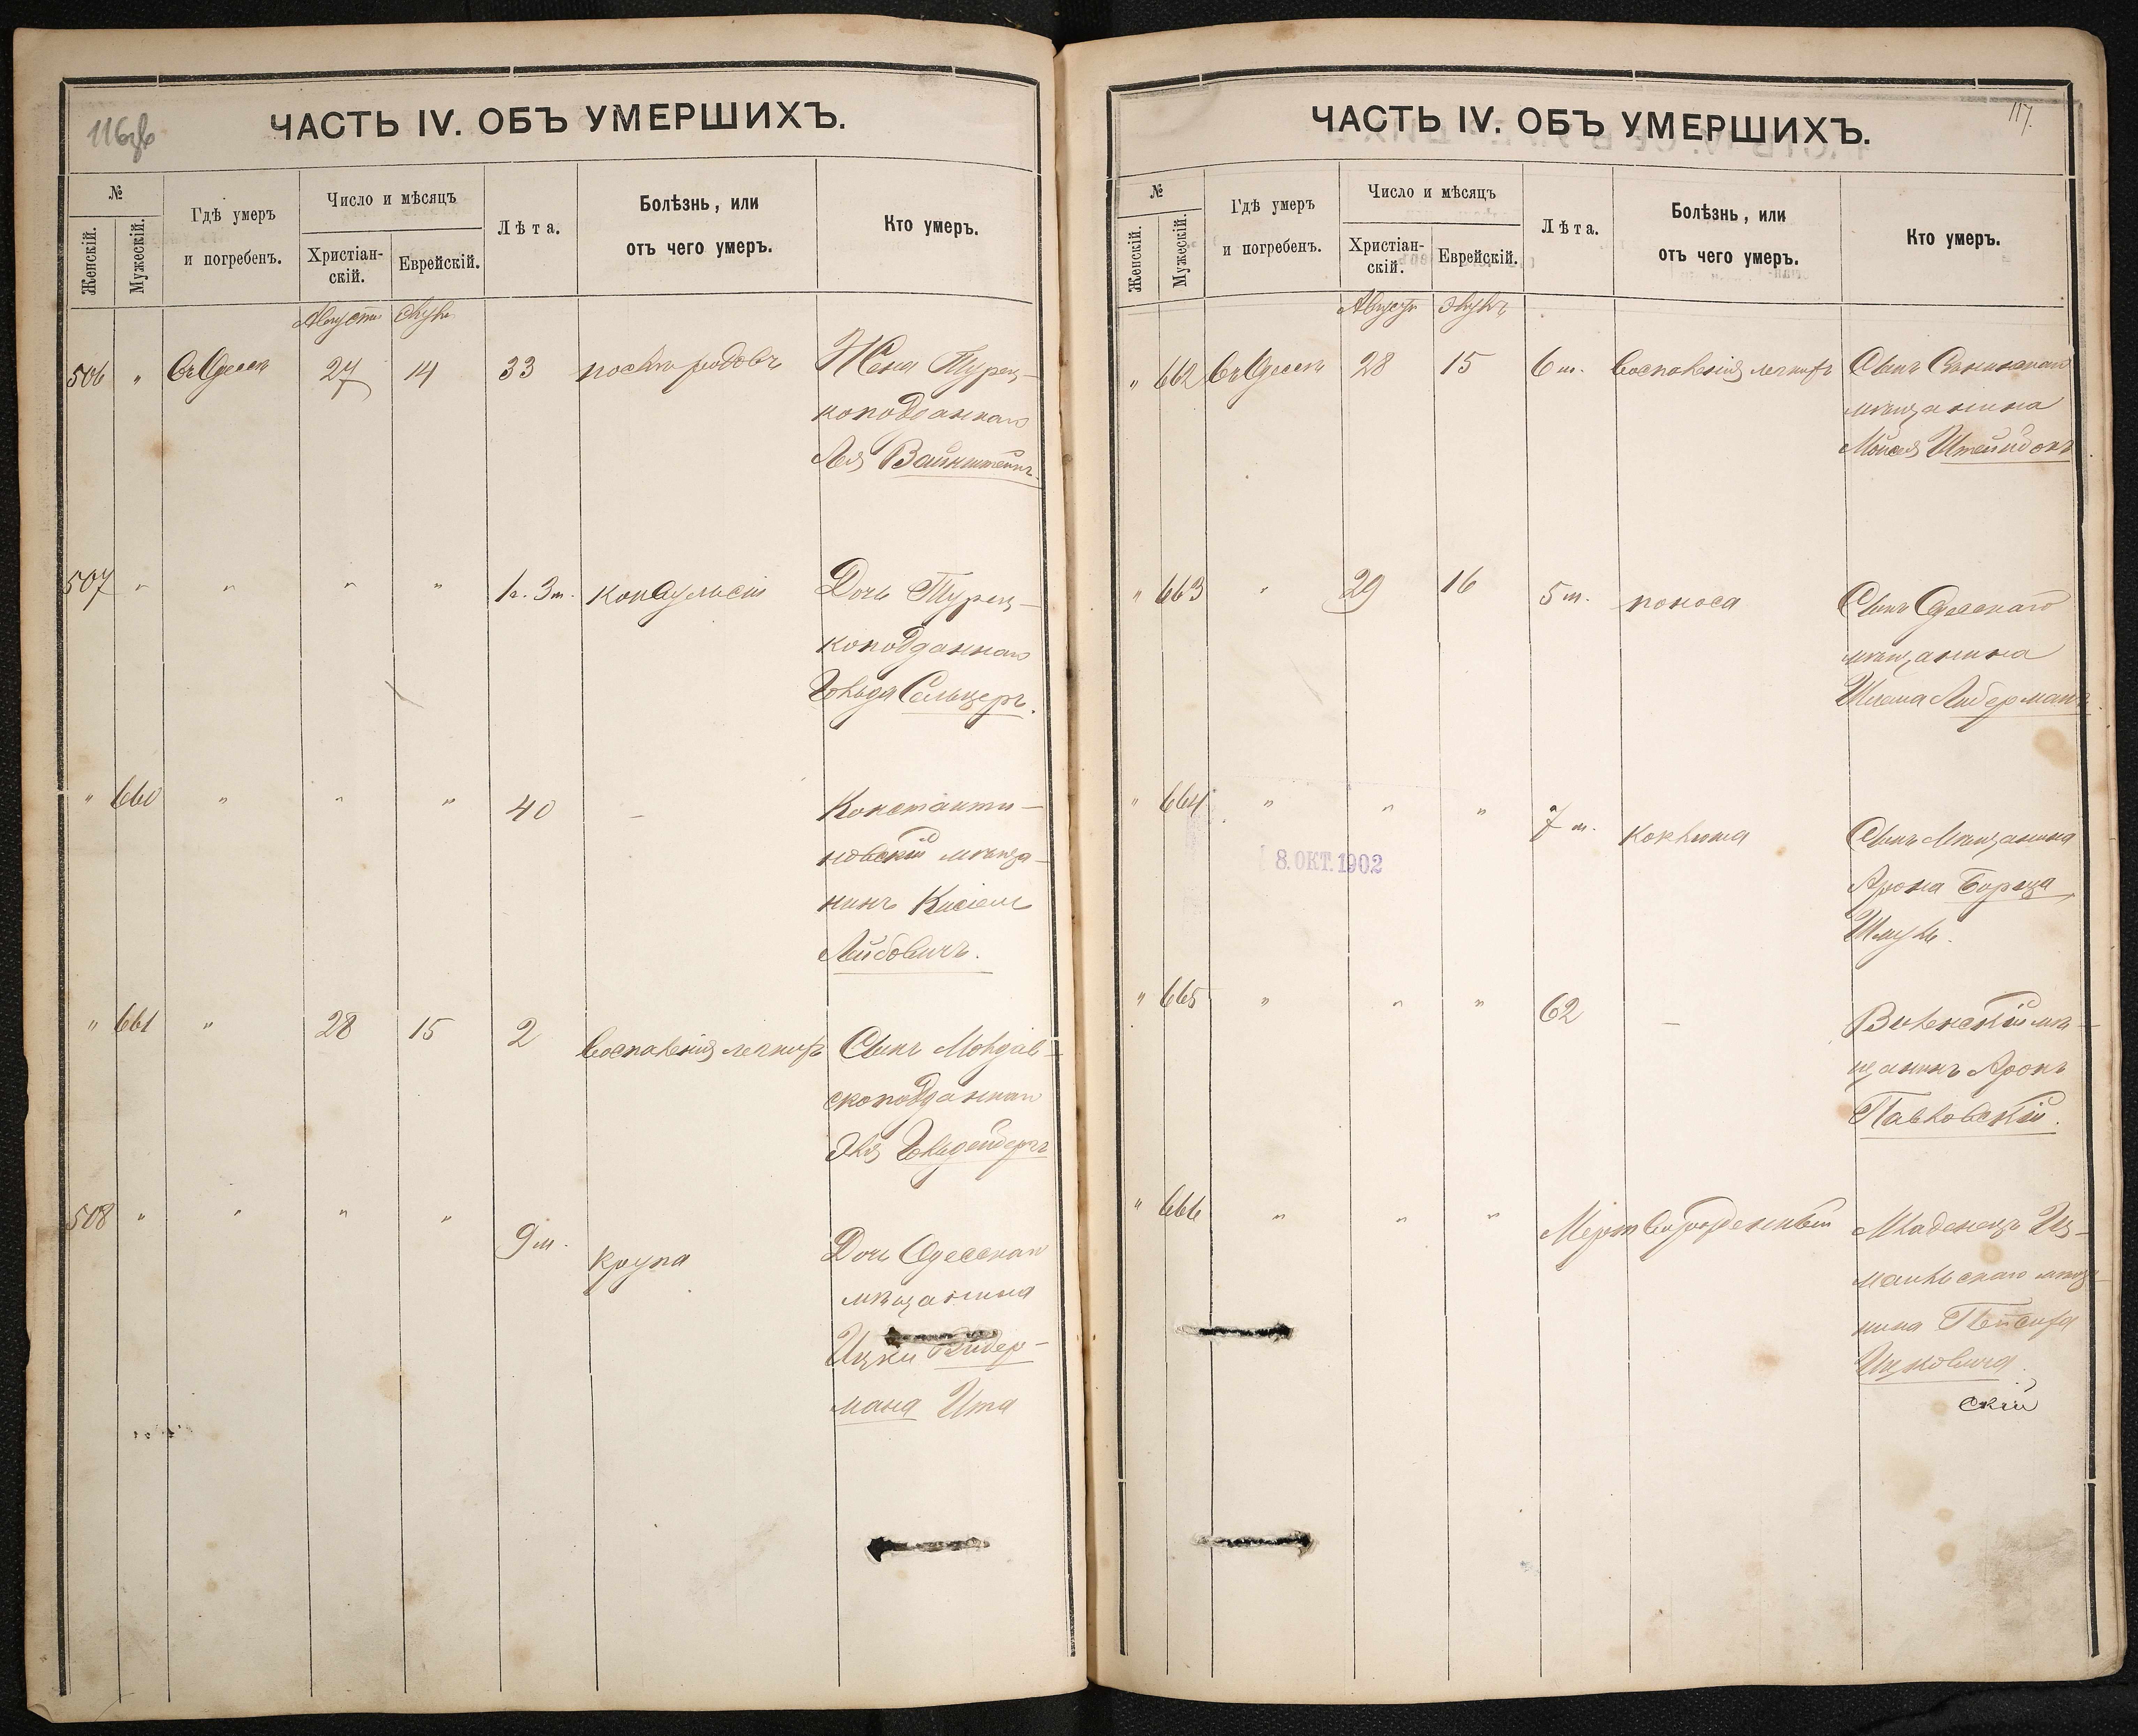 116об
ЧАСТЬ IV. ОБЪ УМЕРШИХЪ.
№
Женскій.
Мужескій.
Гдѣ умеръ
и погребенъ.
Число и мѣсяцъ
Христіан-
скій.
Еврейскій.
Лѣта.
Болѣзнь, или
отъ чего умеръ.
Кто умеръ.
Августъ Элулъ
506 " Въ Одессѣ 27 14 33 послѣ родовъ Жена Турец-
коподданнаго
Лея Вайнштейнъ.
507 " " " " 1 г. 3 м. конвульсіи Дочь Турец-
коподданнаго
Гольда Сельцеръ.
" 660 " " " 40 — Константи-
новскій мѣща-
нинъ Кисіель
Лейбовичъ.
" 661 " 28 15 2 воспаленія легкихъ Сынъ Молдав-
скоподданнаго
508 " " " " 9 м. крупа Дочь Одесскаго
мѣщанина
Ицки Видер-
мана Ита
117.
ЧАСТЬ IV. ОБЪ УМЕРШИХЪ.
№
Женскій.
Мужескій.
Гдѣ умеръ
и погребенъ.
Число и мѣсяцъ
Христіан-
скій.
Еврейскій.
Лѣта.
Болѣзнь, или
отъ чего умеръ.
Кто умеръ.
Августъ Элулъ
" 662 Въ Одессѣ 28 15 6 м. воспаленія легкихъ Сынъ
мѣщанина
Мойсея
" 663 " 29 16 5 м. поноса Сынъ Одесскаго
мѣщанина
Шлема Либерманъ.
" 664 " " " 7 м. коклюша Сынъ Мѣщанина
Арона Борща
Шмуль.
8. ОКТ. 1902
" 665 " " " 62 — Виленскій мѣ-
щанинъ Аронъ
Павловскій.
" 666 " " " Мертворожденный Младенецъ Из-
маильскаго мѣща-
нина
Ицковича
скій